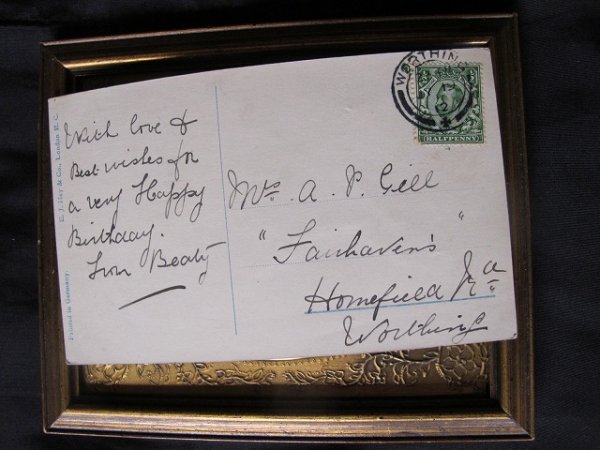 With love &
Best wishes for
a very Happy
Birthday.
from Beaty
Mrs A. P. Gill
"Fairhaven's"
Homefield Rd
Worthing
WORTHING
HALFPENNY
E. J. Hey & Co., London E. C.
Printed in Germany.